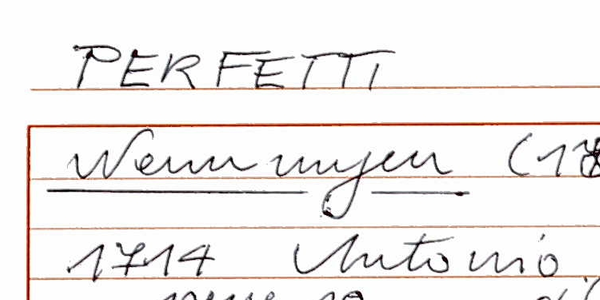 PERFETTI
Wemmingen (17
1714 Antonio